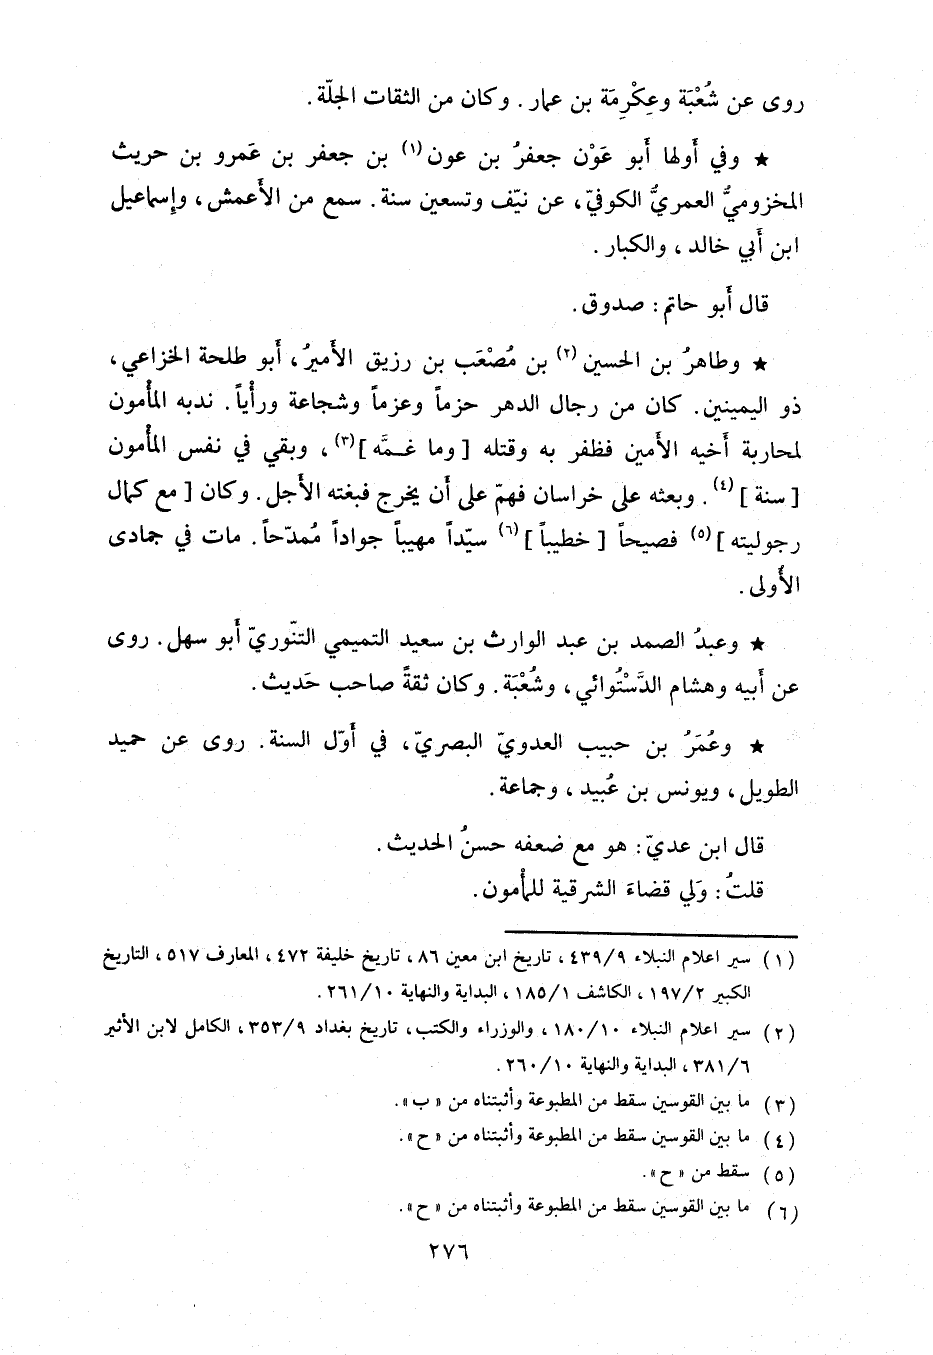 روى عن شُعْبَة وعِكْرِمَة بن عمار . وكان من الثقات الجلّة .
★ وفي أَولها أَبو عَوْن جعفرُ بن عون (١) بن جعفر بن عَمرو بن حريث
المخزوميُّ العمريُّ الكوفيّ، عن نيّف وتسعين سنة . سمع من الأَعمش، وإِسماعيل
ابن أَبي خالد ، والكبار .
قال أَبو حاتم : صدوق .
★ وطاهرُ بن الحسين (٢) بن مُصْعَب بن رزيق الأَميرُ، أَبو طلحة الخزاعي ،
ذو اليمينين . كان من رجال الدهر حزماً وعزماً وشجاعة ورأْياً . ندبه المأْمون
لمحاربة أَخيه الأَمين فظفر به وقتله [ وما غـمَّه ] (٣) ، وبقي في نفس المأْمون
[ سنة ] (٤) . وبعثه على خراسان فهمّ على أَن يخرج فبغته الأَجل . وكان [ مع كمال
رجوليته ] (٥) فصيحاً [ خطيباً ] (٦) سيّداً مهيباً جواداً مُمدّحاً . مات في جمادى
الأُولى .
★ وعبدُ الصمد بن عبد الوارث بن سعيد التميمي التنّوريّ أَبو سهل . روى
عن أَبيه وهشام الدَّسْتُوائي ، وشُعْبَة . وكان ثقةً صاحب حَديث .
★ وعُمَرُ بن حبيب العدويّ البصريّ، في أَوّل السنة . روى عن حميد
الطويل ، ويونس بن عُبيد ، وجماعة .
قال ابن عديّ : هو مع ضعفه حسنُ الحديث .
قلتُ : وَلي قضاءَ الشرقية للمأْمون .
(١) سير اعلام النبلاء ٤٣٩/٩ ، تاريخ ابن معين ٨٦ ، تاريخ خليفة ٤٧٢ ، المعارف ٥١٧ ، التاريخ
الكبير ١٩٧/٢ ، الكاشف ١٨٥/١ ، البداية والنهاية ٢٦١/١٠ .
(٢) سير اعلام النبلاء ١٨٠/١٠ ، والوزراء والكتب، تاريخ بغداد ٣٥٣/٩ ، الكامل لابن الأثير
٣٨١/٦ ، البداية والنهاية ٢٦٠/١٠ .
(٣) ما بين القوسين سقط من المطبوعة وأثبتناه من «ب» .
(٤) ما بين القوسين سقط من المطبوعة وأثبتناه من «ح» .
(٥) سقط من «ح» .
(٦) ما بين القوسين سقط من المطبوعة وأثبتناه من «ح» .
٢٧٦